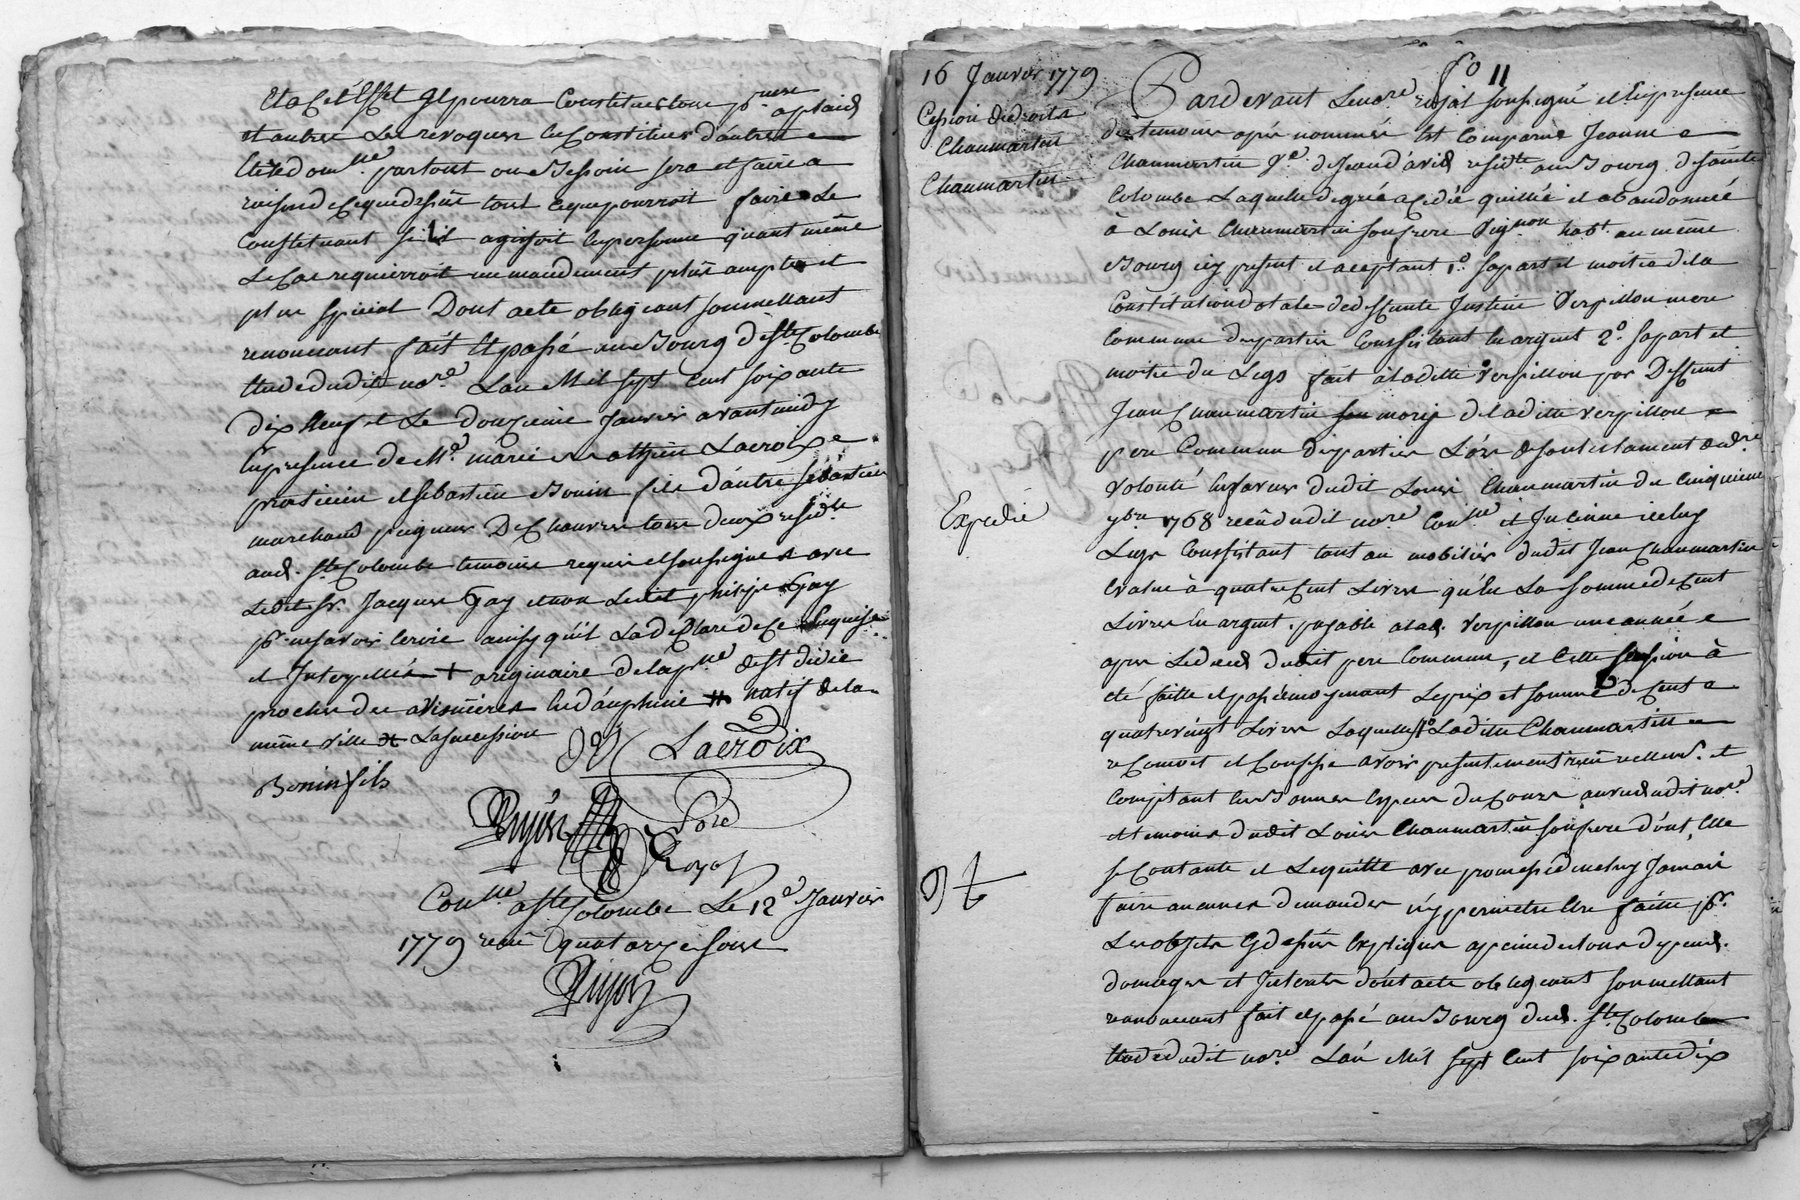 Et a cet Effet Il pourra Constituer tous p.r neurs aplaids
et autres Les revoquer en Constituer d'autres
Elire dom.lle partout ou Besoin sera et faire a
raison de ce que dessus tout ce que pourroit faire Le
Constituant s'il agissoit en personne quant même
Le Cas requierroit un mandement plus ample et
plus special Dont acte obligeant soumettant
renoncant fait Et passé au Bourg de S.te Colombe
Etude dudit no.re L'an Mil sept cent soixante
Dix Neuf et Le Douzieme Janvier avant midy
En presence de M.e marie mathieu Lacroix
praticien et Sebastien Bonin fils d'autre Sebastien
marchand peigneur De Chanvre tous deux resid.ts
aud. S.te Colombe temoins requis et soussignés avec
Ledit Sr. Jacques Gay et non Ledit philipe Gay
p.r ne savoir Ecrire ainsy qu'il La déclaré de ce Enquis
et Interpellé + originaire de la p.sse de St didié
proche des avenieres en dauphiné # natif de la
même ville # La succession
Lacroix
Bonin fils
Rujas
Gore
Con.llé a S.te Colombe Le 12.e Janvier
1779 recu quatorze sous
Rujas
f.o 11
16 Janvier 1779
Cession de droits
Chaumartin
Chaumartin
Expedié
Pardevant Le no.re rujas soussigné et En presence
des temoins après nommés Est Comparue Jeanne
Chaumartin V.e de Jean david resid.te au Bourg de sainte
Colombe Laquelle de gré a cedé quitté et abandonné
à Louis Chaumartin son frere Vigneron hab.t au même
Bourg icy present et aceptant 1.o sa part et moitié de la
Constitution dotale de deffunte Justine Verpillon mere
Commune des parties Consistant en argent 2.o sa part et
moitié du Legs fait à ladite Verpillon par Deffunt
Jean Chaumartin mary de ladite Verpillon
pere Commun des parties Lors de son testament de d.re
Volonté En faveur dudit Louis Chaumartin du Cinquieme
9bre 1768 recû dudit no.re Con.llé et Insinué icelluy
Legs Consistant tant au mobilier dudit Jean Chaumartin
Evalué à quatre cent Livres qu'En La somme de Cent
Livres En argent payable a lad. Verpillon une année
après Le deces dudit pere Commun, et Cette Cession à
été faitte et passée moyenant Le prix et somme de Cent
quatrevingt Livres Laquelle Ladite Chaumartin
reConnoit et Confesse avoir presentement reçu réellem.t et
Comptant En Bonnes Especes du Cours au vu dudit no.re
et temoins dudit Louis Chaumartin son frere dont Elle
se Contante et L'en quitte avec promesse de ne luy Jamais
faire aucunes demandes ny permettre Etre faitte p.r
Les objets Cy dessus Expliqués a peine de tous depens.
domages et Interets dont acte obligeant soumettant
renoncant fait et passé au Bourg dud. S.te Colombe
Etude dudit no.re L'an Mil sept Cent soixante dix